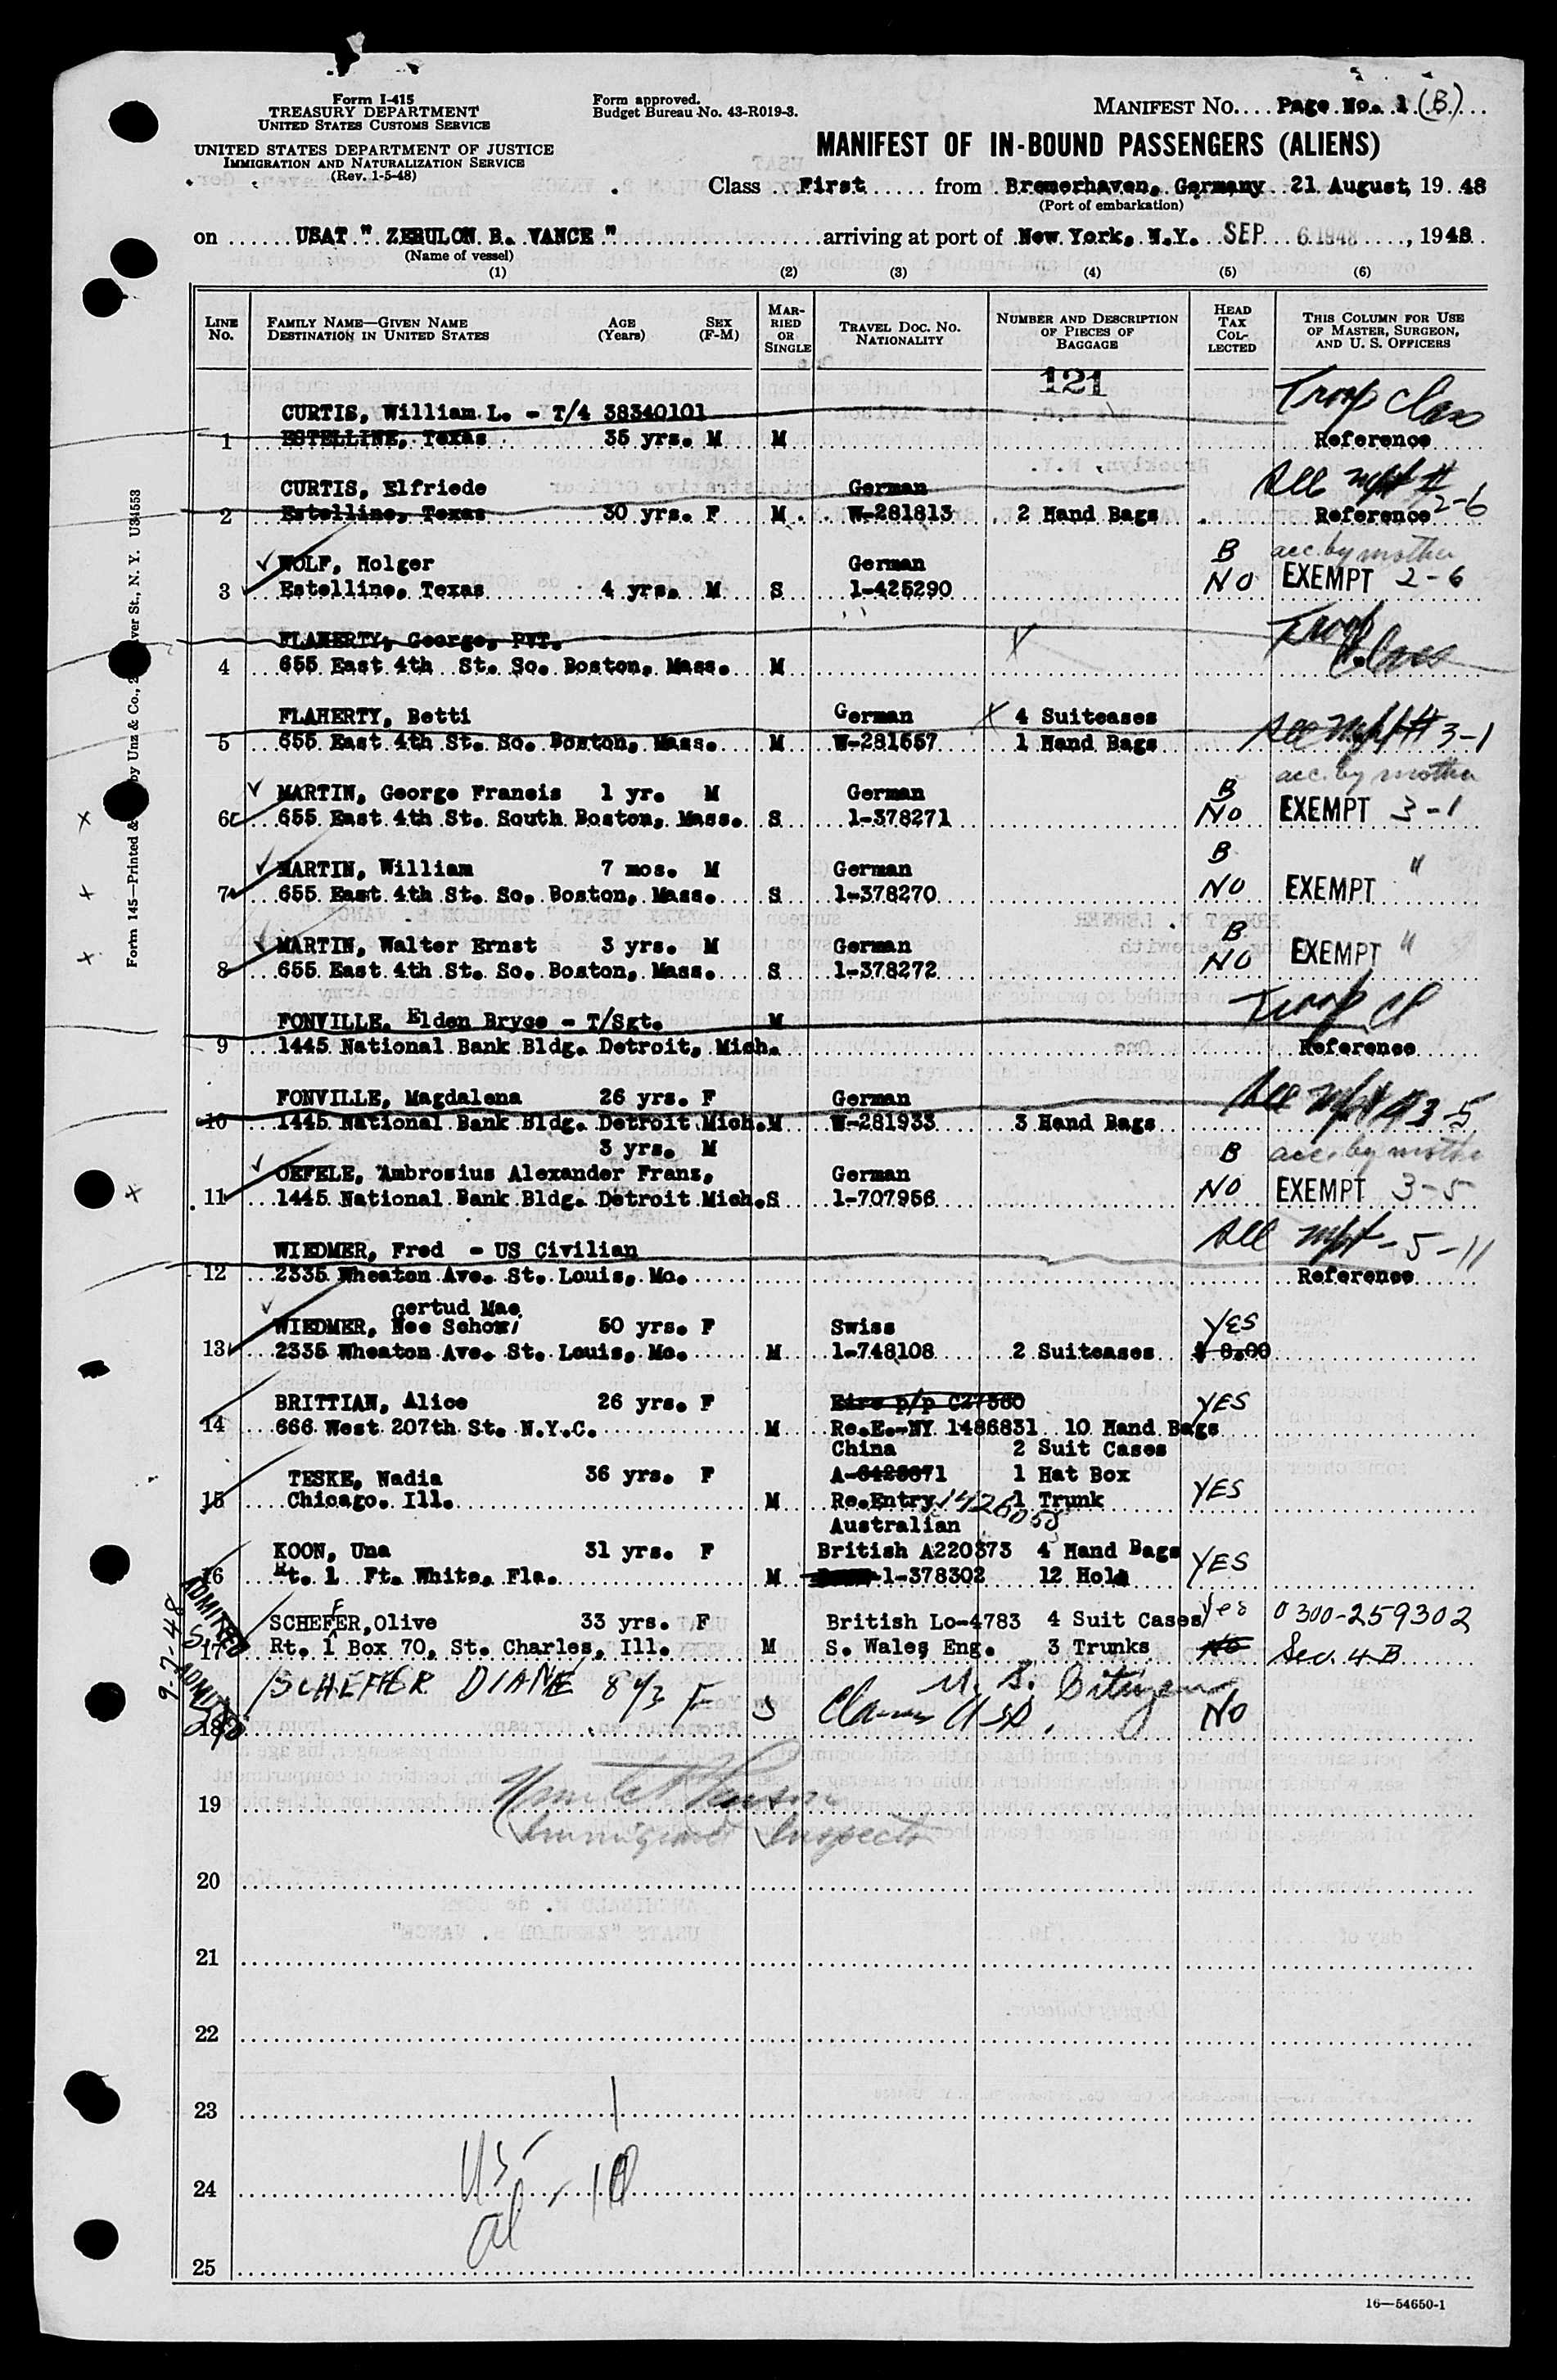 Form I-415
TREASURY DEPARTMENT
UNITED STATES CUSTOMS SERVICE
UNITED STATES DEPARTMENT OF JUSTICE
IMMIGRATION AND NATURALIZATION SERVICE
(Rev. 1-5-48)
Form approved.
Budget Bureau No. 43-R019-3.
MANIFEST NO. Page No. 1 (B)
MANIFEST OF IN-BOUND PASSENGERS (ALIENS)
Class First from Bremerhaven, Germany 21 August, 19 48
(Port of embarkation)
on USAT " ZEBULON B. VANCE " arriving at port of New York, N.Y. SEP 6 1948, 1948
(Name of vessel)
(1) (2) (3) (4) (5) (6)
LINE NO. FAMILY NAME—GIVEN NAME DESTINATION IN UNITED STATES AGE (Years) SEX (F-M) MARRIED OR SINGLE TRAVEL DOC. NO. NATIONALITY NUMBER AND DESCRIPTION OF PIECES OF BAGGAGE HEAD TAX COLLECTED THIS COLUMN FOR USE OF MASTER, SURGEON, AND U. S. OFFICERS
121
CURTIS, William L. - T/4 38340101 Troop Class
1 ESTELLINE, Texas 35 yrs. M M Reference
CURTIS, Elfriede German See mft #
2 Estelline, Texas 30 yrs. F M W-281813 2 Hand Bags Reference 2-6
WOLF, Holger German B acc. by mother
3 Estelline, Texas 4 yrs. M S 1-425290 NO EXEMPT 2-6
FLAHERTY, George, PVT. Troop
4 655 East 4th St. So. Boston, Mass. M Class
FLAHERTY, Betti German X 4 Suitcases
5 655 East 4th St. So. Boston, Mass. M W-281557 1 Hand Bags See mft # 3-1
acc. by mother
MARTIN, George Francis 1 yr. M German B
6 655 East 4th St. South Boston, Mass. S 1-378271 No EXEMPT 3-1
MARTIN, William 7 mos. M German B "
7 655 East 4th St. So. Boston, Mass. S 1-378270 NO EXEMPT
MARTIN, Walter Ernst 3 yrs. M German B
8 655 East 4th St. So. Boston, Mass. S 1-378272 NO EXEMPT "
FONVILLE, Elden Bryce - T/Sgt. M Troop Cl
9 1445 National Bank Bldg. Detroit, Mich. Reference
FONVILLE, Magdalena 26 yrs. F German See mft # 3-5
10 1445 National Bank Bldg. Detroit Mich. M W-281933 3 Hand Bags
3 yrs. M
OEFELE, Ambrosius Alexander Franz, German B acc. by mother
11 1445 National Bank Bldg. Detroit Mich. S 1-707956 NO EXEMPT 3-5
WIEDMER, Fred - US Civilian See mft - 5-11
12 2335 Wheaton Ave. St. Louis, Mo. Reference
Gertud Mae
WIEDMER, Nee Schori 50 yrs. F Swiss YES
13 2335 Wheaton Ave. St. Louis, Mo. M 1-748108 2 Suitcases $ 8.00
BRITTIAN, Alice 26 yrs. F Eire p/p C27360 YES
14 666 West 207th St. N.Y.C. M Re.E.-NY 1486831 10 Hand Bags
China 2 Suit Cases
TESKE, Nadia 36 yrs. F 1 Hat Box
15 Chicago. Ill. M Re.Entry 1 Trunk YES
Australian
KOON, Una 31 yrs. F British A220373 4 Hand Bags
16 Rt. 1 Ft. White, Fla. M 1-378302 12 Hold YES
ADMITTED
9-7-48
SCHEFER, Olive 33 yrs. F British Lo-4783 4 Suit Cases Yes 0300-259302
17 Rt. 1 Box 70, St. Charles, Ill. M S. Wales Eng. 3 Trunks No Sec. 4-B
ADMITTED
9-7-48
SCHEFFER DIANE F S U. S. Citizen
18 No
19
Immigrant Inspector
20
21
22
23
24
25
Form 145—Printed & by Unz & Co., St., N. Y.
16—54650-1